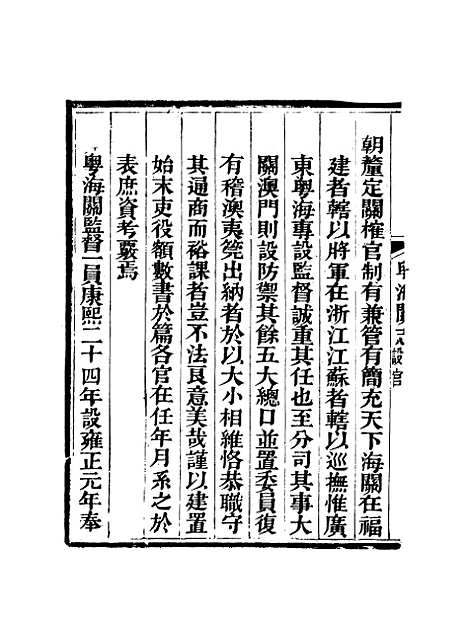 朝釐定關榷官制有兼管有簡充天下海關在福
建者轄以將軍在浙江江蘇者轄以巡撫惟廣
東粵海專設監督誠重其任也至分司其事大
關澳門則設防禦其餘五大總口並置委員復
有稽澳夷筦出納者於以大小相維恪恭職守
其通商而裕課者豈不法良意美哉謹以建置
始末吏役額數書於篇各官在任年月系之於
表庶資考覈焉
粵海關監督一員康熙二十四年設雍正元年奉